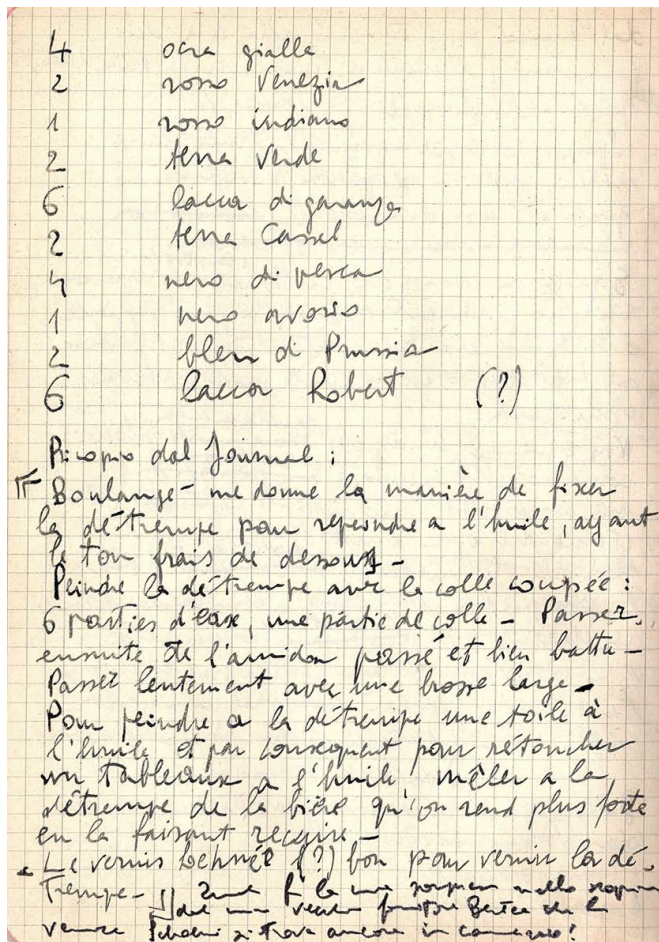 4 ocra gialla
2 rosso Venezia
1 rosso indiano
2 terra verde
6 lacca di garanza
2 terra Cassel
4 nero di pesca
1 nero avorio
2 bleu di Prussia
6 lacca Robert (?)
Ricopio dal Journal:
Boulangé - me donne la manière de fixer
la détrempe pour repeindre a l'huile, ayant
le ton frais de dessous -
Peindre la détrempe avec la colle coupée:
6 parties d'eau, une partie de colle - Passer
ensuite de l'amidon passé et bien battu -
Passer lentement avec une brosse large -
Pour peindre a la détrempe une toile à
l'huile et par consequent pour retoucher
un tableaux a l'huile mêler a la
détrempe de la bière qu'on rend plus forte
en la faisant recuire -
Le vernis (?) bon pour vernir la dé-
trempe -
si trova ancora in commercio!